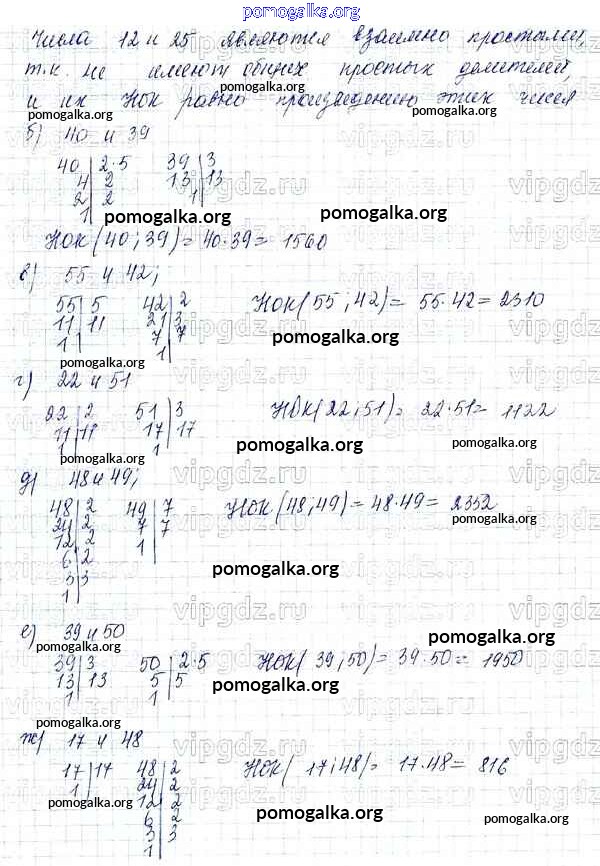 pomogalka.org
Числа 12 и 25 являются взаимно простыми,
т.к. не имеют общих простых делителей,
и их НОК равно произведению этих чисел
б) 40 и 39
40 | 2·5 39 | 3
4 | 2 13 | 13
2 | 2 1 |
1 |
НОК (40; 39) = 40·39 = 1560
в) 55 и 42;
55 | 5 42 | 2 НОК (55; 42) = 55·42 = 2310
11 | 11 21 | 3
1 | 7 | 7
1 |
г) 22 и 51
22 | 2 51 | 3 НОК (22; 51) = 22·51 = 1122
11 | 11 17 | 17
1 | 1 |
д) 48 и 49;
48 | 2 49 | 7 НОК (48; 49) = 48·49 = 2352
24 | 2 7 | 7
12 | 2 1 |
6 | 2
3 | 3
1 |
е) 39 и 50
39 | 3 50 | 2·5 НОК (39; 50) = 39·50 = 1950
13 | 13 5 | 5
1 | 1 |
ж) 17 и 48
17 | 17 48 | 2 НОК (17; 48) = 17·48 = 816
1 | 24 | 2
12 | 2
6 | 2
3 | 3
1 |
pomogalka.org
vipgdz.ru